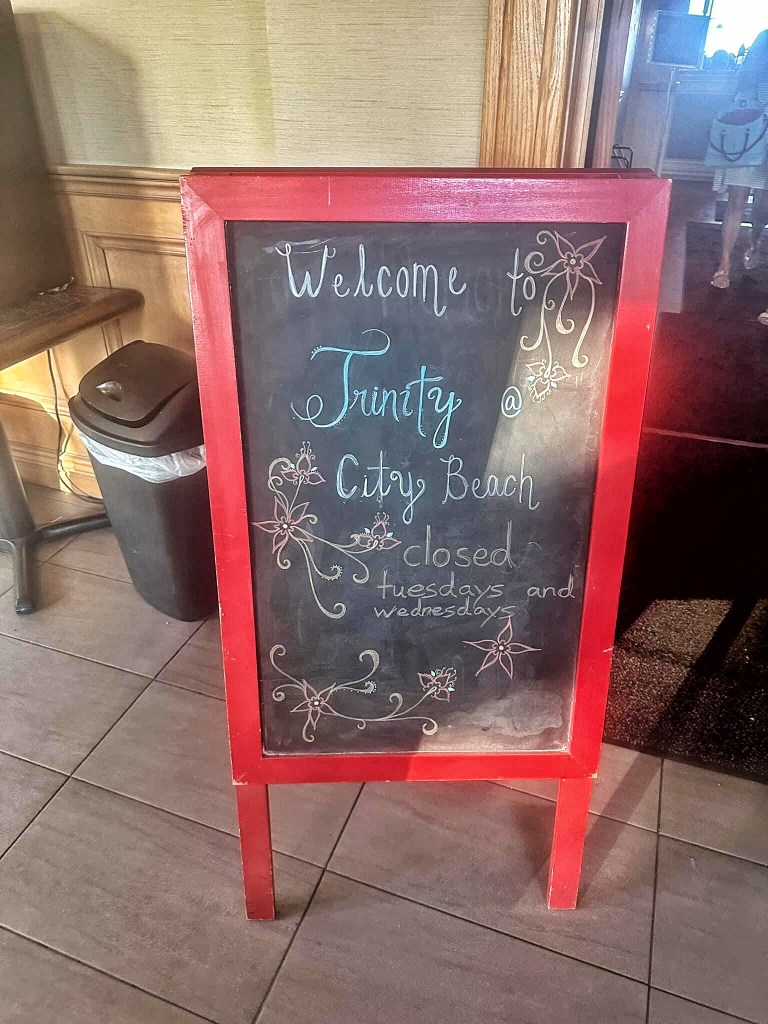 Welcome to
Trinity @
City Beach
closed
tuesdays and
wednesdays